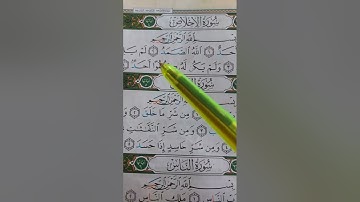 سُورَةُ الْإِخْلَاصِ
بِسْمِ اللَّهِ الرَّحْمَٰنِ الرَّحِيمِ
اللَّهُ الصَّمَدُ لَمْ
وَلَمْ يَكُن لَّهُ أَحَدٌ
سُورَةُ
بِسْمِ اللَّهِ الرَّحْمَٰنِ الرَّحِيمِ
مِن شَرِّ مَا خَلَقَ
وَمِن شَرِّ النَّفَّٰثَٰتِ
وَمِن شَرِّ حَاسِدٍ إِذَا حَسَدَ
سُورَةُ النَّاسِ
بِسْمِ اللَّهِ الرَّحْمَٰنِ الرَّحِيمِ
النَّاسِ مَلِكِ النَّاسِ